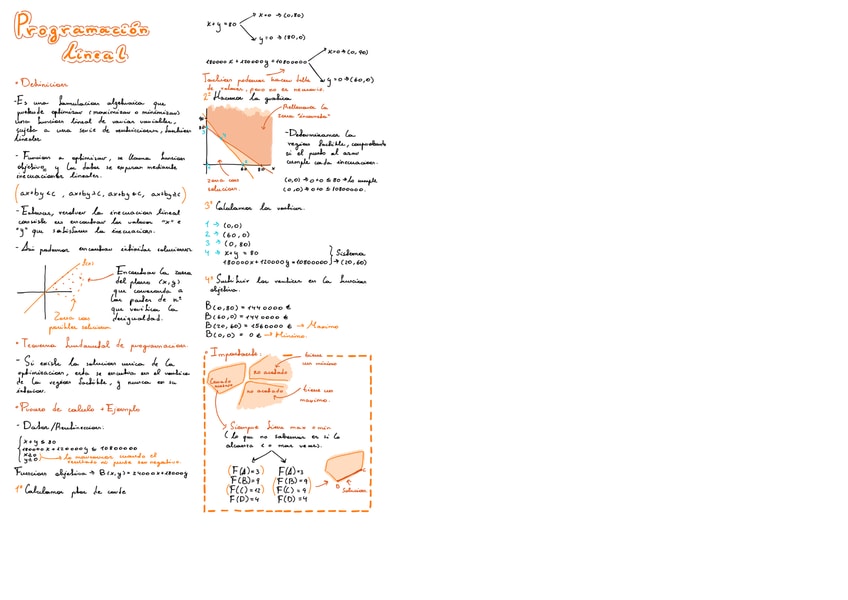 Programación
lineal
• Definicion
- Es una formulacion algebraica que
pretende optimizar (maximizar o minimizar)
una funcion lineal de varias variables,
sujeta a una serie de restricciones, tambien
lineales
- Funcion a optimizar, se llama funcion
objetivo, y los datos se expresan mediante
inecuaciones lineales.
(ax+by<c, ax+by>c, ax+by≤c, ax+by≥c)
- Entonces, resolver la inecuacion lineal
consiste en encontrar los valores "x" e
"y" que satisfacen la inecuacion.
- Asi podemos encontrar infinitas soluciones
Encontrar la zona
del plano (x,y)
que corresponde a
los pares de nº
que verifican la
desigualdad.
Zona con
posibles soluciones
• Teorema fundamental de programacion.
- Si existe la solucion unica de la
optimizacion, esta se encontra en el vertice
de la region factible, y nunca en su
interior.
• Proceso de calculo + Ejemplo
- Datos/Restriccion:
x+y≤80
180000x+120000y≤10800000
x≥0
y≥0
→ lo marcamos cuando el
resultado no puede ser negativo.
Funcion objetiva → B(x,y)=24000x+18000y
1º Calculamos ptos de corte
x+y=80
x=0 → (0,80)
y=0 → (80,0)
180000x+120000y=10800000
x=0 → (0,90)
y=0 → (60,0)
Tambien podemos hacer tabla
de valores, pero no es necesario.
2º Hacemos la grafica
Rellenamos la
zona "incorrecta"
- Determinamos la
region factible, comprobando
si el punto al azar
cumple cada inecuacion.
(0,0) → 0+0≤80 → lo cumple
(0,0) → 0+0≤10800000.
90
80
3
4
1
2
60
80
x
zona con
solucion.
3º Calculamos los vertices.
1 → (0,0)
2 → (60,0)
3 → (0,80)
4 → x+y=80
180000x+120000y=10800000
} Sistema
→ (20,60)
4º Sustituir los vertices en la funcion
objetiva.
B(0,80)=1440000 €
B(60,0)=1440000 €
B(20,60)=1560000 € → Maximo
B(0,0)= 0€ → Minimo.
• Importante:
no acotado
→ tiene
un minimo
no acotado
→ tiene un
maximo.
Siempre tiene max y min
(lo que no sabemos es si lo
alcanza 1 o mas veces).
F(A)=3
F(B)=9
F(C)=12
F(D)=4
F(A)=3
F(B)=9
F(C)=9
F(D)=4
B
C
Solucion